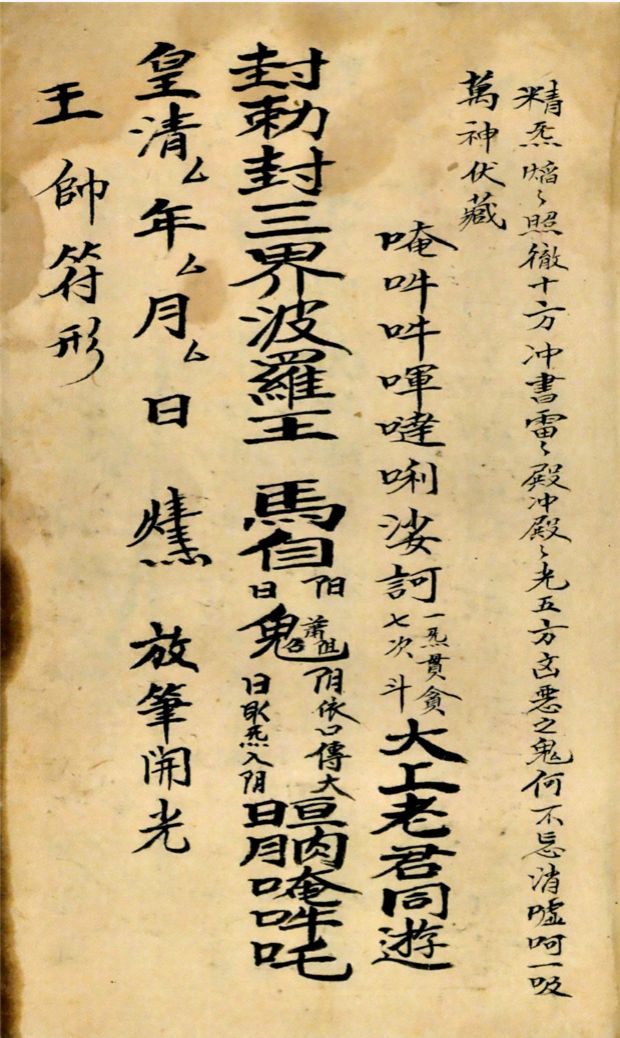 精炁熖々照徹十方冲書雷々殿冲殿々光五方凶惡之鬼何不忘消噓呵一吸
萬神伏藏
唵吽吽㖞噠唎娑訶一炁貫貪七次斗大上老君同遊
封勅封三界波羅王
馬自
阳
日
鬼
阴依口傳大
日取炁入阴
亘肉
日月
唵吽吒
皇清厶年厶月厶日
放筆開光
王帥符形